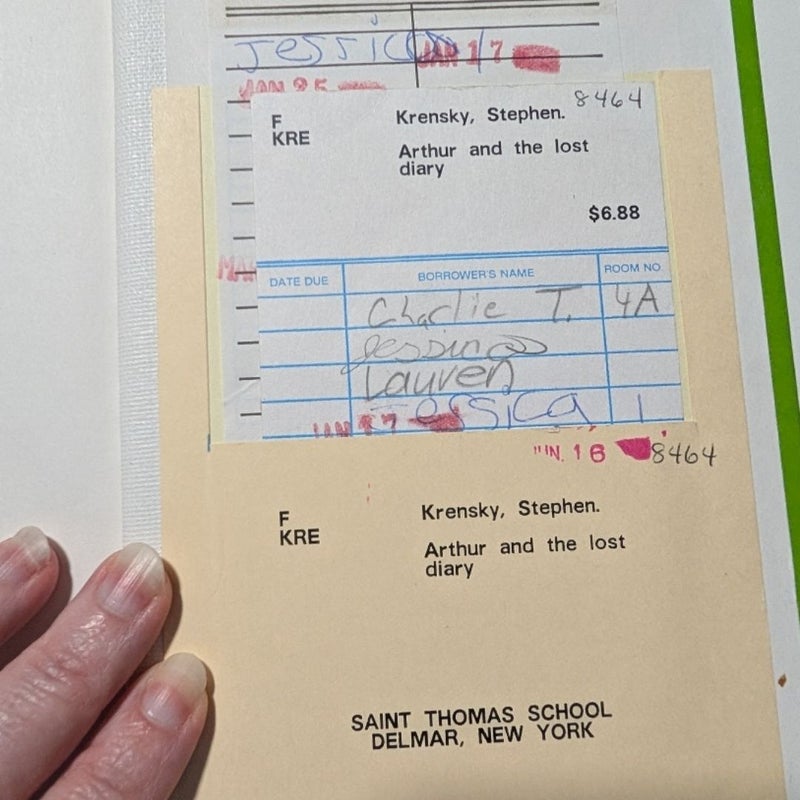 Jessica JAN 17
JAN 25
8464
F Krensky, Stephen.
KRE
Arthur and the lost
diary
$6.88
DATE DUE BORROWER'S NAME ROOM NO.
Charlie T. 4A
Lauren
Jessica 1
JAN 17
JUN. 16 8464
F Krensky, Stephen.
KRE
Arthur and the lost
diary
SAINT THOMAS SCHOOL
DELMAR, NEW YORK